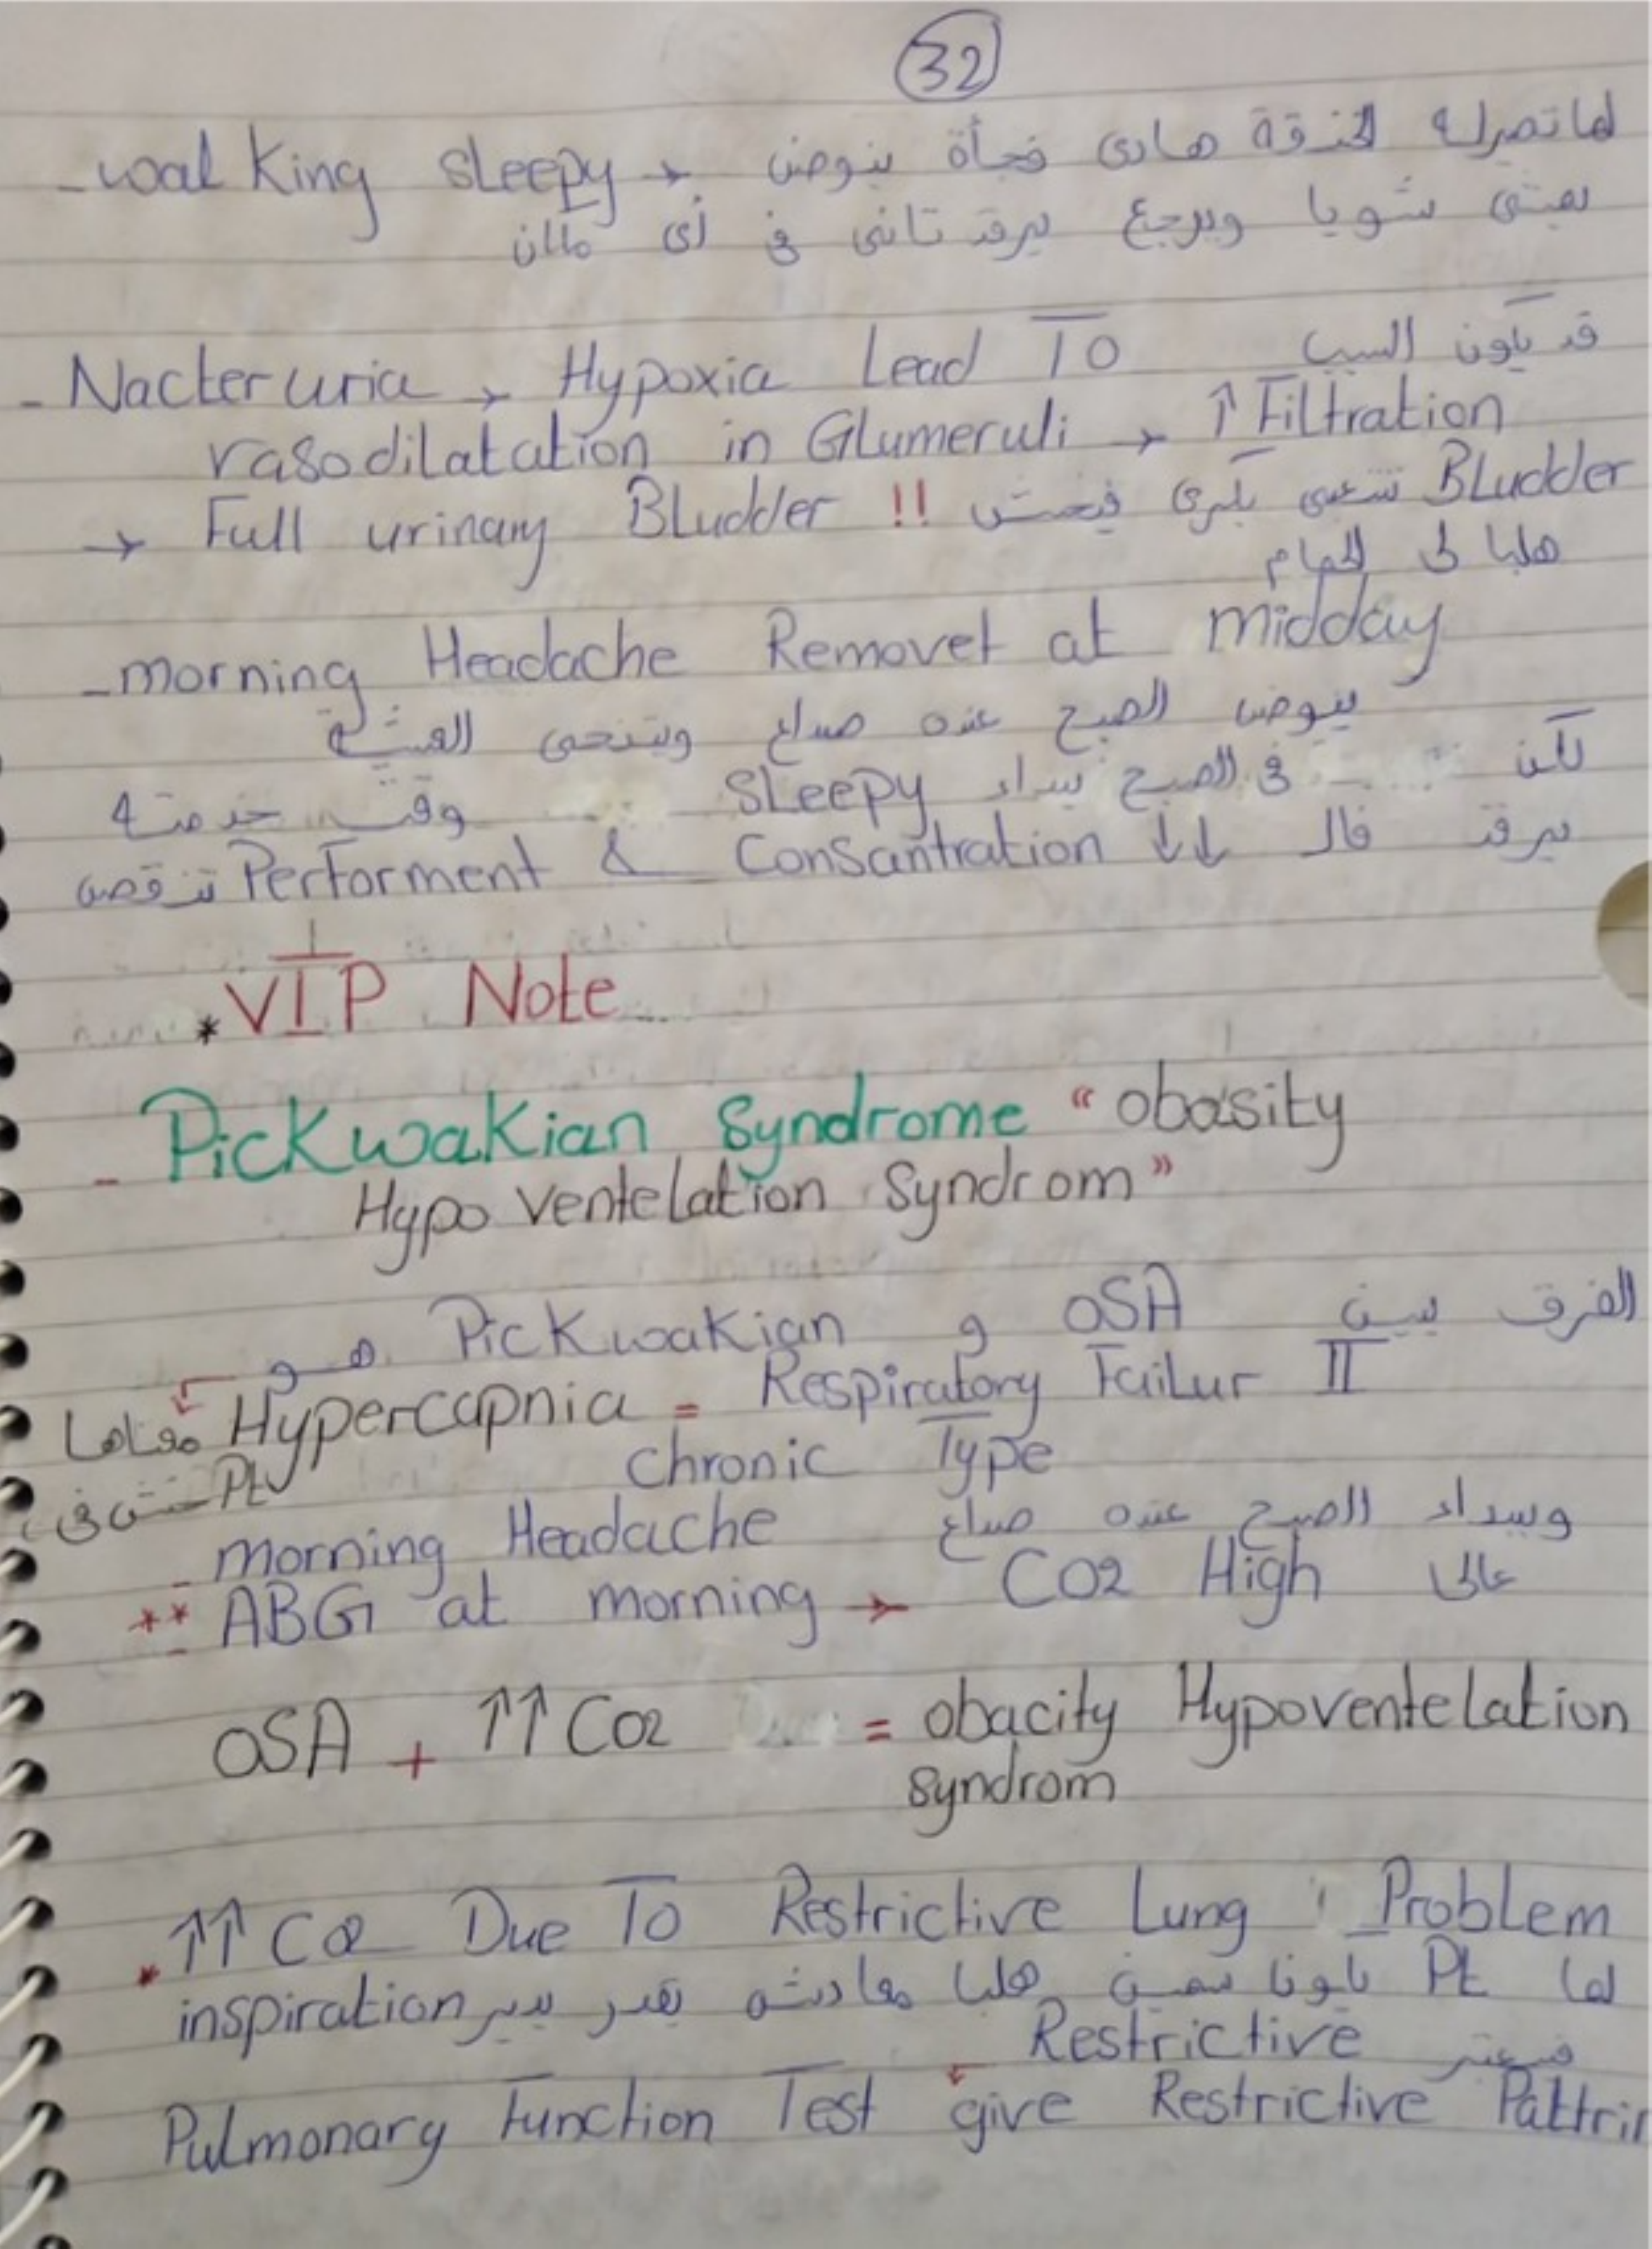 32
- walking sleepy → لما تصيرله الخنقة هادى فجأة ينوض
يمشى شويا ويرجع يرقد تانى فى أى مكان
- Nacteruria → Hypoxia Lead To قد يكون السبب
vasodilatation in Glumeruli → ↑ Filtration
→ Full urinary Bludder !! Bludder تتعبى بكرى فيمش
هلبا لى الحمام
- morning Headache Removet at midday
ينوض الصبح عنده صداع ويتنحى العشية
لكن فى الصبح يبداء sleepy وقت خدمتة
يرقد فال ↓↓ Consantration & Performent تنقص
* VIP Note
- Pickwakian Syndrome “obasity
Hypo ventelation Syndrom”
الفرق بين OSA و Pickwakian هو
معناها Hypercapnia = Respiratory Failur II
chronic Type
Pt
- morning Headache ويبداء الصبح عنده صداع
** ABG at morning → CO2 High عالى
OSA + ↑↑ CO2 = obacity Hypoventelation
syndrom
* ↑↑ CO2 Due To Restrictive Lung Problem
لما Pt يكونا سمين هلبا معادش يقدر يدير inspiration
Restrictive
Pulmonary Function Test give Restrictive Pattrin